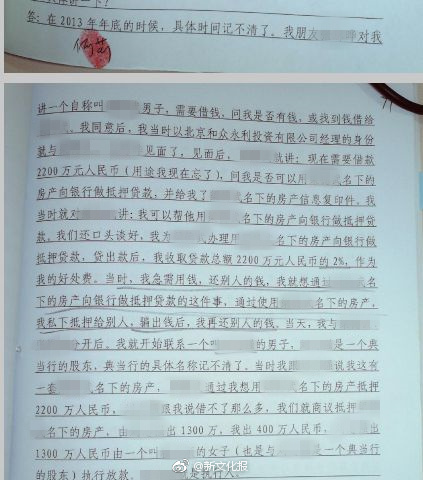 答：在 2013 年年底的时候，具体时间记不清了。我朋友 对我
讲一个自称叫 男子，需要借钱，问我是否有钱，或找到钱借给
我同意后，我当时以北京和众永利投资有限公司经理的身份
就与 见面了，见面后， 就讲：现在需要借款
2200 万元人民币（用途我现在忘了），问我是否可以用 名下的
房产向银行做抵押贷款，并给我了 名下的房产信息复印件。我
当时就对 讲：我可以帮他用 名下的房产向银行做抵押贷
款。我们还口头谈好，我为 办理用 名下的房产向银行做
抵押贷款，贷出款后，我收取贷款总额 2200 万元人民币的 2%，作为
我的好处费。当时，我急需用钱，还别人的钱，我就想通过 名
下的房产向银行做抵押贷款的这件事，通过使用 名下的房产，
我私下抵押给别人，骗出钱后，我再还别人的钱。当天，我与
分开后。我就开始联系一个 的男子， 是一个典
当行的股东，典当行的具体名称记不清了。当时我跟 说我这有
一套 名下的房产， 通过我想用 名下的房产抵押
2200 万人民币， 跟我说借不了那么多，我们就商议抵押
名下的房产，由 出 1300 万，我出 400 万人民币， 出
1300 万人民币由一个叫 的女子（也是与 是一个典当行
的股东）执行放款。 是执行人。
@新文化报